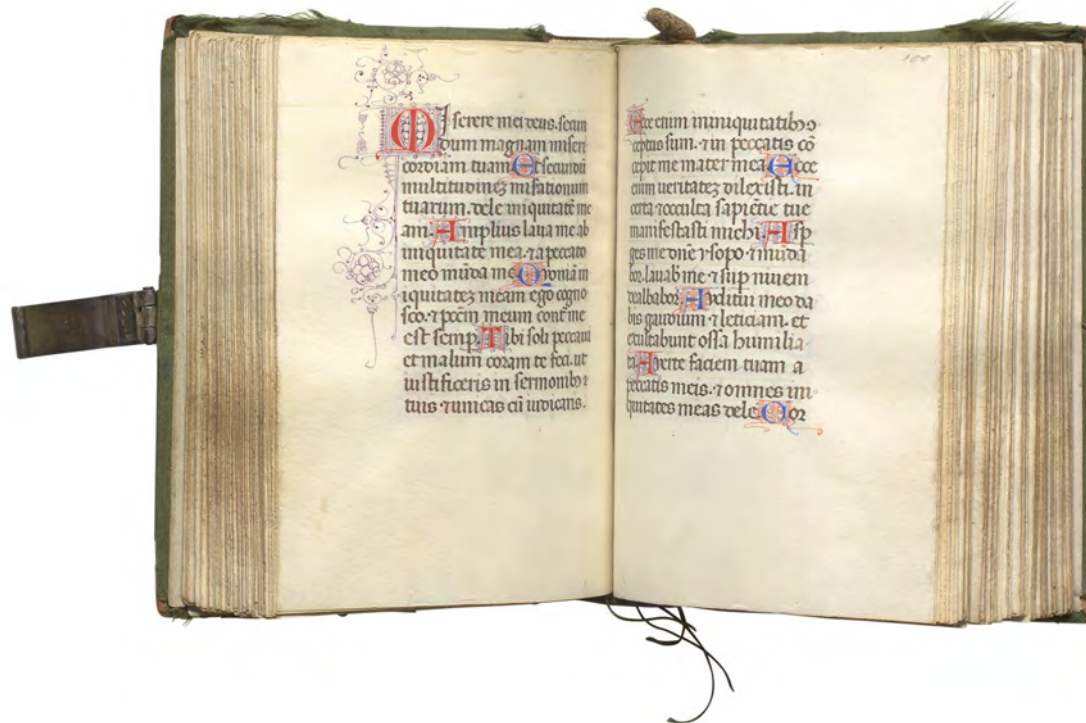 MIserere mei deus. secun
dum magnam miseri
cordiam tuam Et secundū
multitudineȝ miſationum
tuarum. dele iniquitatē me
am. Amplius laua me ab
iniquitate mea. ⁊ a peccato
meo mūda me Qvoniā in
iquitateȝ meam ego cogno
sco. ⁊ pccm̄ meum contͣ me
est semp̲. Tibi soli peccaui
et malum coram te feci. ut
iustificeris in sermonibꝰ
tuis ⁊ uincas cū iudicaris.
Ecce enim in iniquitatibꝰ ↄ
ceptus sum. ⁊ in peccatis cō
cepit me mater mea Ecce
enim ueritateȝ dilexisti. in
certa ⁊ occulta sapiētie tue
manifestasti michi. Asp
ges me dn̄e ⁊ sopo ⁊ mūda
bor. lauab̄ me ⁊ sup̄ niuem
dealbabor. Avditui meo da
bis gaudium ⁊ leticiam. et
exultabunt ossa humilia
ta. Averte faciem tuam a
peccatis meis. ⁊ omnes ini
quitates meas dele Cor